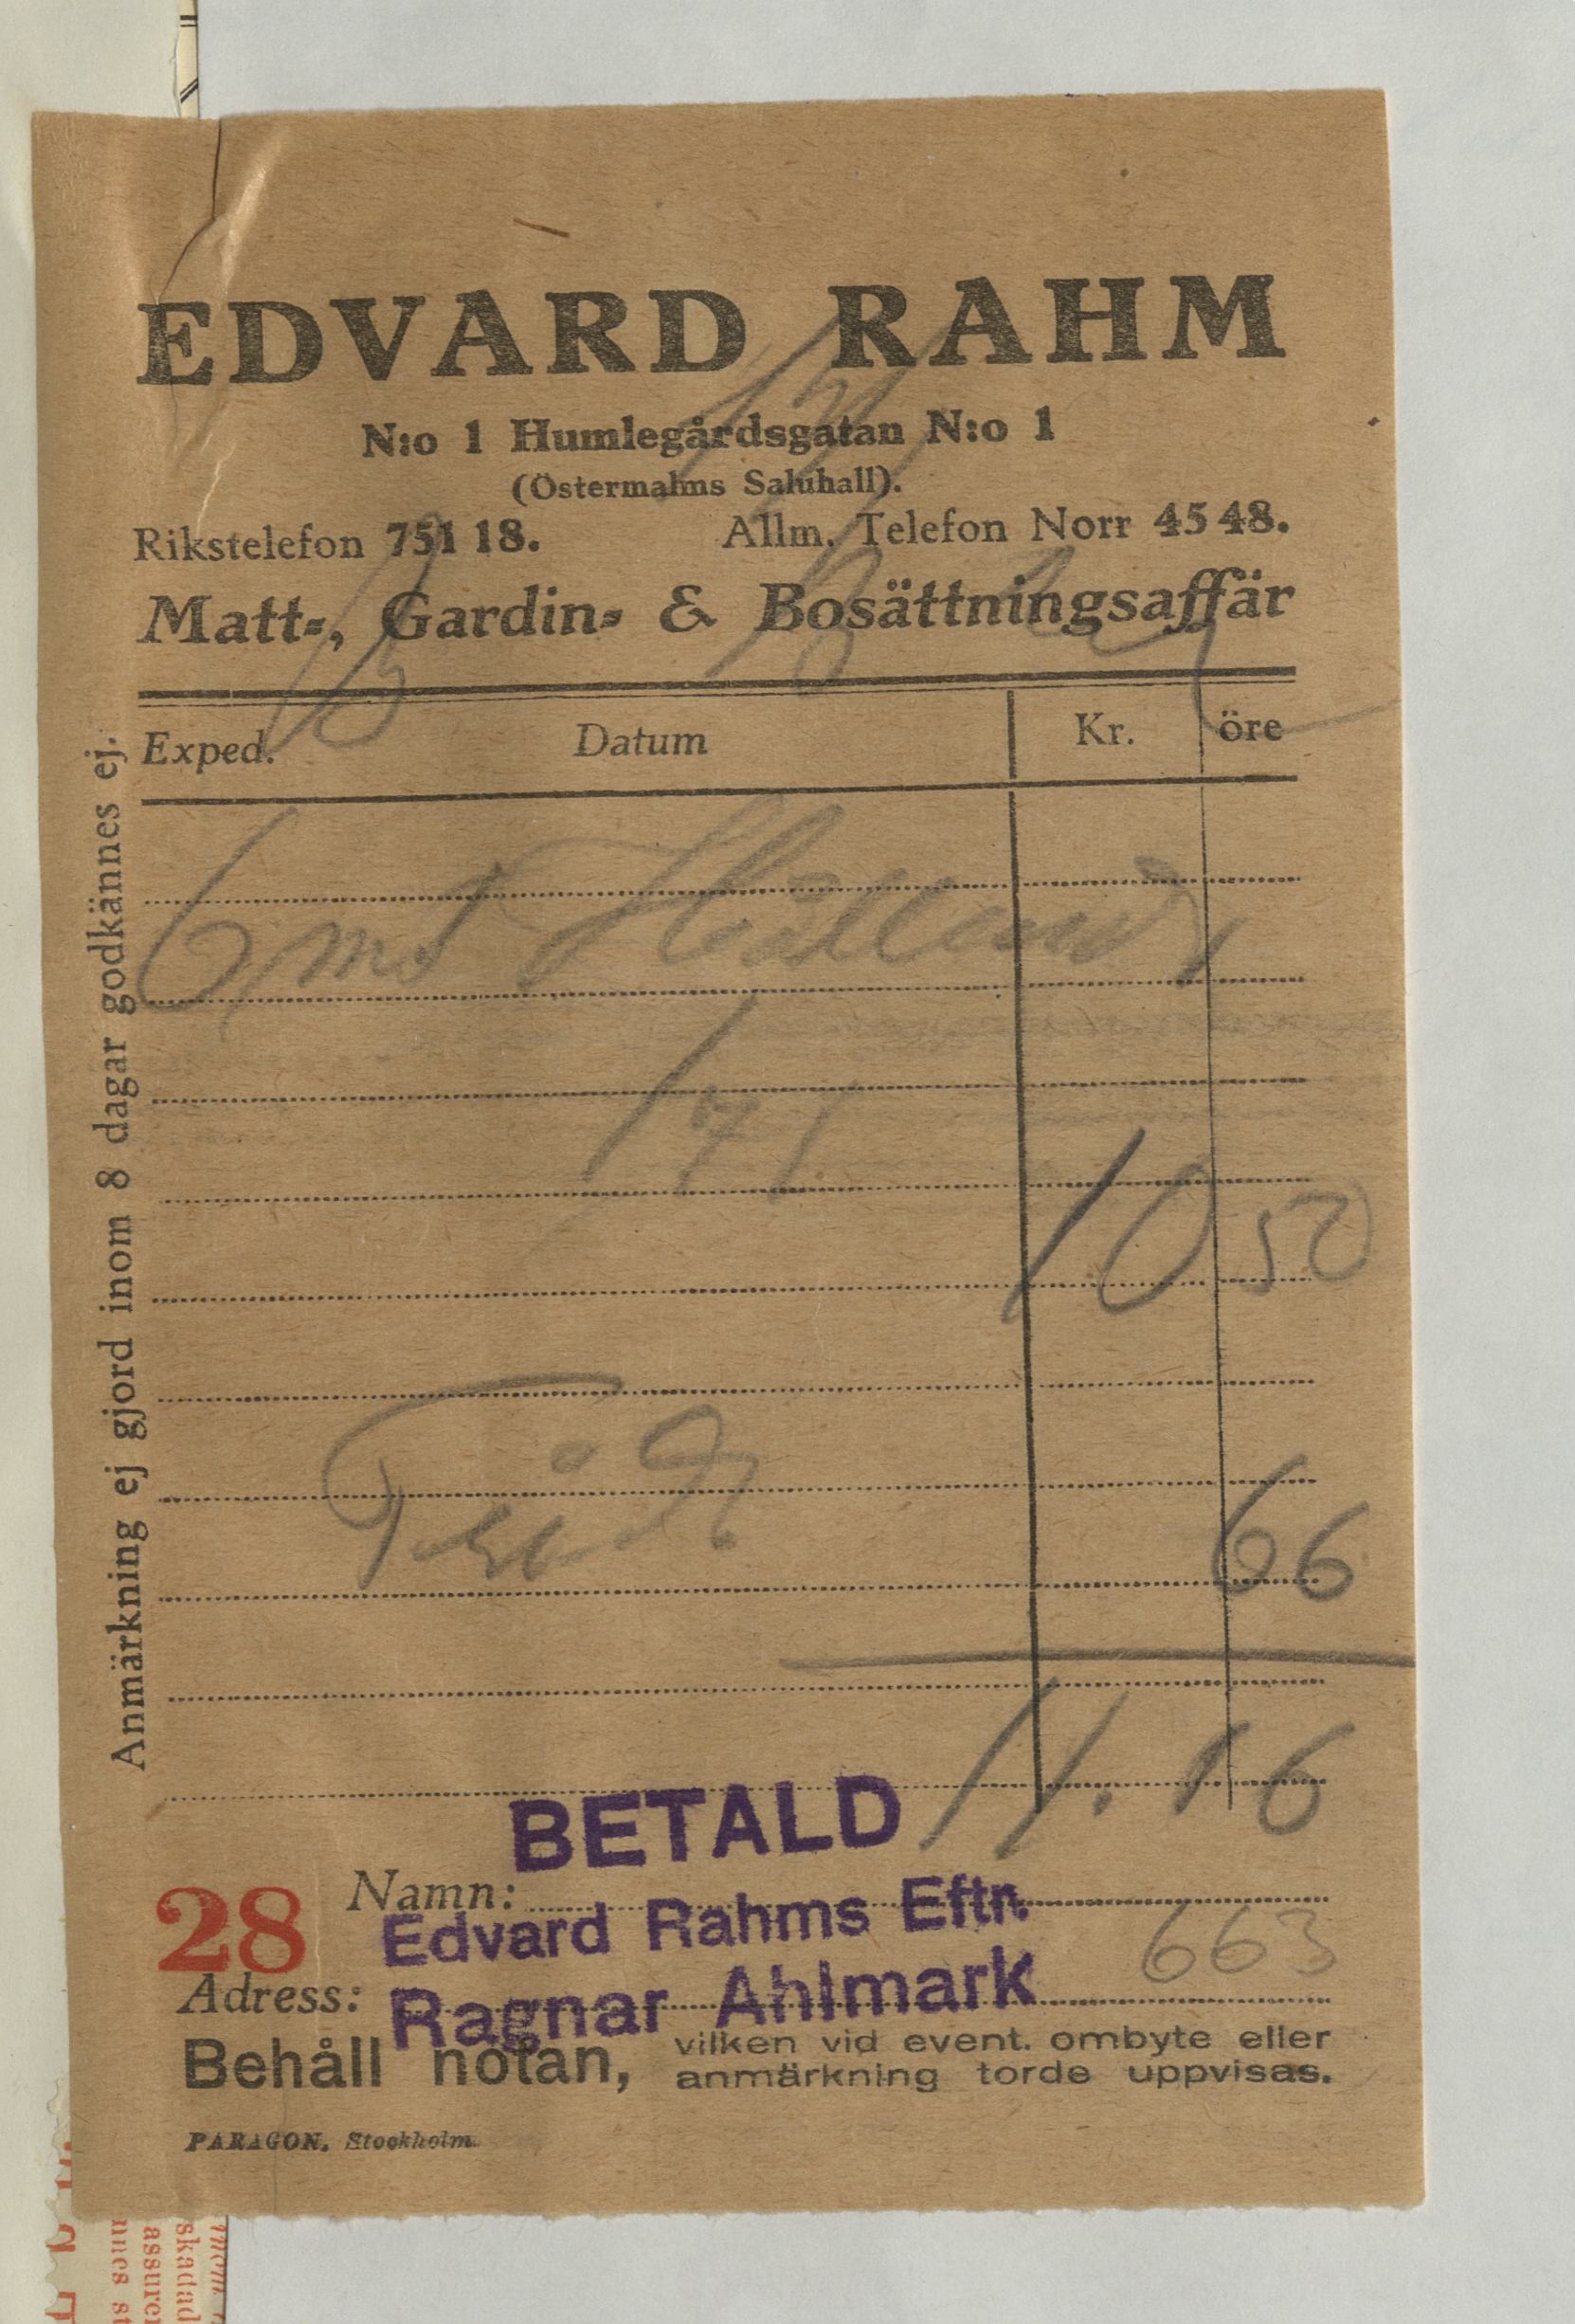 EDVARD RAHM
N:o 1 Humlegårdsgatan N:o 1
(Östermalms Saluhall).
Rikstelefon 751 18. Allm. Telefon Norr 45 48.
Matt-, Gardin- & Bosättningsaffär
Exped. Datum Kr. öre
6 mt
175
10 50
Tråd
66
11.16
BETALD
28 Namn:
Edvard Rahms Eftr.
663
Adress:
Ragnar Ahlmark
Behåll notan, vilken vid event. ombyte eller
anmärkning torde uppvisas.
PARAGON. Stockholm.
Anmärkning ej gjord inom 8 dagar godkännes ej.
skadad